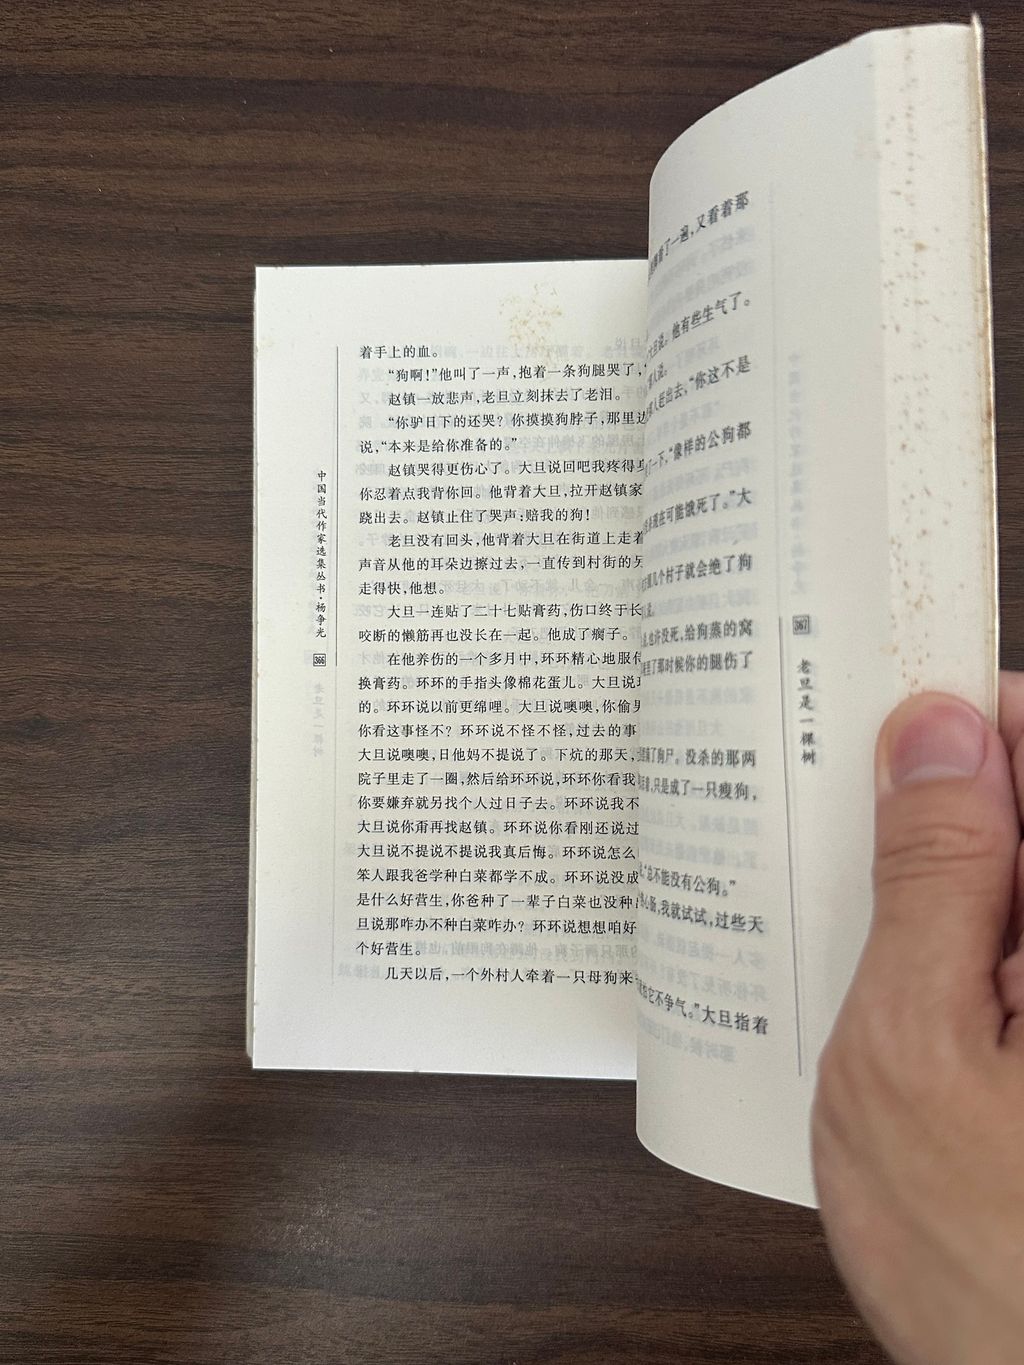 着手上的血。
“狗啊！”他叫了一声，抱着一条狗腿哭了，
赵镇一放悲声，老旦立刻抹去了老泪。
“你驴日下的还哭？你摸摸狗脖子，那里边
说，“本来是给你准备的。”
赵镇哭得更伤心了。大旦说回吧我疼得
你忍着点我背你回。他背着大旦，拉开赵镇家
跷出去。赵镇止住了哭声：赔我的狗！
老旦没有回头，他背着大旦在街道上走着
声音从他的耳朵边擦过去，一直传到村街的另
走得快，他想。
大旦一连贴了二十七贴膏药，伤口终于长
咬断的懒筋再也没长在一起。他成了瘸子。
在他养伤的一个多月中，环环精心地服侍
换膏药。环环的手指头像棉花蛋儿。大旦说
的。环环说以前更绵哩。大旦说噢噢，你偷
你看这事怪不？环环说不怪不怪，过去的事
大旦说噢噢，日他妈不提说了。下炕的那天，
院子里走了一圈，然后给环环说，环环你看我
你要嫌弃就另找个人过日子去。环环说我不
大旦说你甭再找赵镇。环环说你看刚还说过
大旦说不提说不提说我真后悔。环环说怎么
笨人跟我爸学种白菜都学不成。环环说没成
是什么好营生，你爸种了一辈子白菜也没种
旦说那咋办不种白菜咋办？环环说想想咱好
个好营生。
几天以后，一个外村人牵着一只母狗来
中国当代作家选集丛书·杨争光
366
了一遍，又看着那
大旦说。他有些生气了。
人说。
出去，“你这不是
了一下，“像样的公狗都
现在可能饿死了。”大
几个村子就会绝了狗
也许没死，给狗蒸的窝
了那时候你的腿伤了
了狗尸。没杀的那两
着，只是成了一只瘦狗，
“总不能没有公狗。”
心肠，我就试试，过些天
它不争气。”大旦指着
367
老旦是一棵树